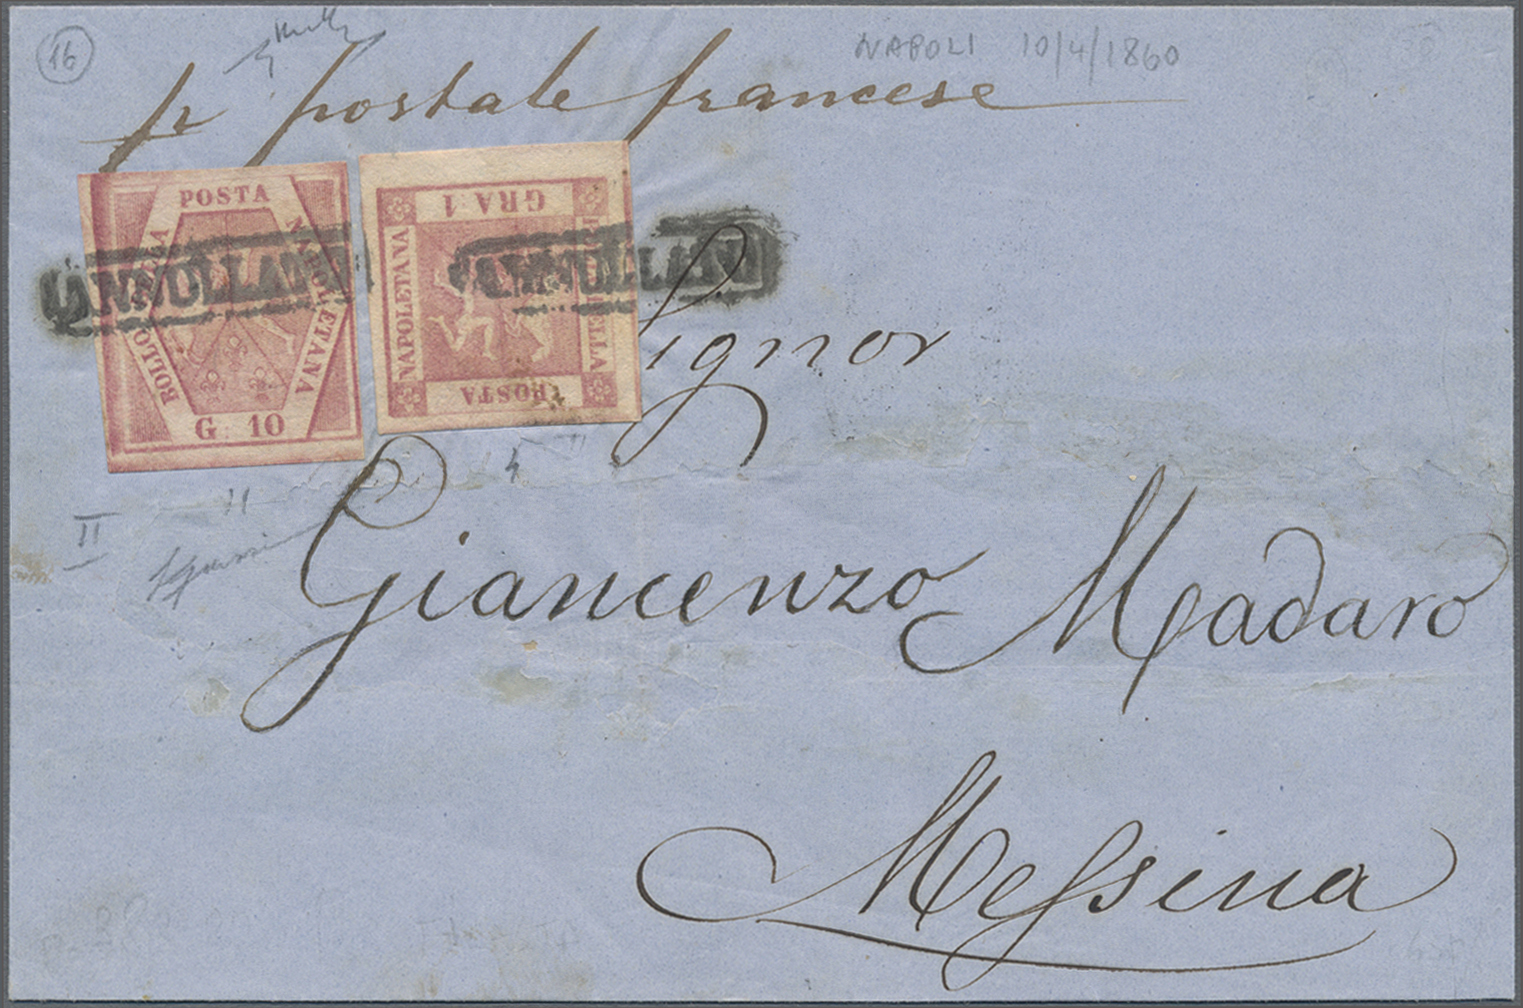 16
NAPOLI 10/4/1860
pr postale francese
POSTA
NAPOLETANA
BOLLO DELLA
G. 10
ANNULLATO
GRA 1
NAPOLETANA
POSTA
BOLLO DELLA
ANNULLATO
Signor
II
Giancenzo Madaro
Messina